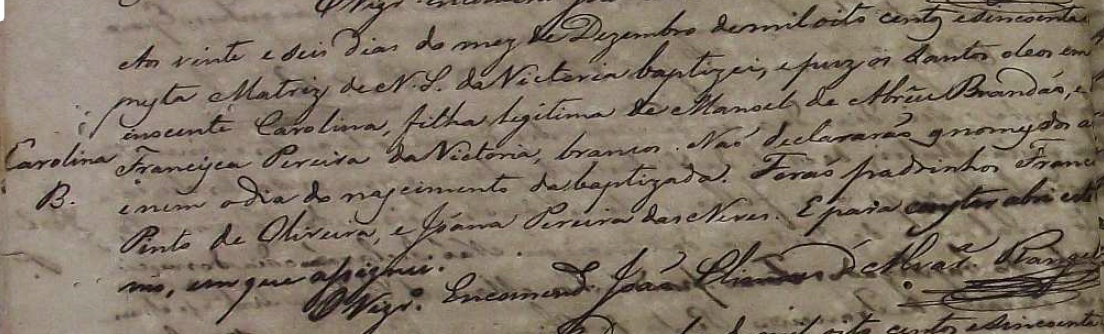 Aos vinte e seis dias do mez de Dezembro de mil oito centos e sincoenta
nesta Matriz de N. S. da Victoria baptizei, e puz os Santos oleos em
inocente Carolina, filha legitima de Manoel de Abrêu Brandão, e
Carolina
B.
Francisca Pereira da Victoria, brancos. Não declararão q nomes dos a
e nem o dia do nascimento da baptizada. Forão padrinhos Franc
Pinto de Oliveira, e Joána Pereira das Neves. E para constar abri este
mo, em que assignei.
O Vigr.º Encomend. João Rangel